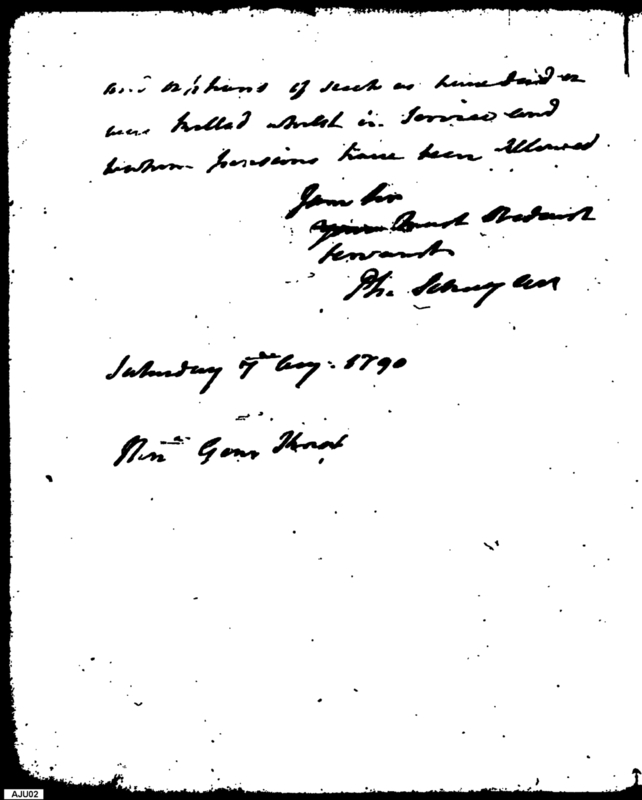 and orphans of such as have died or
were killed whilst in Service and
to whom pensions have been Allowed
I am Sir
your most Obedient
Servant
Ph: Schuyler
Saturday 7th Aug: 1790
Genl Knox
AJU02